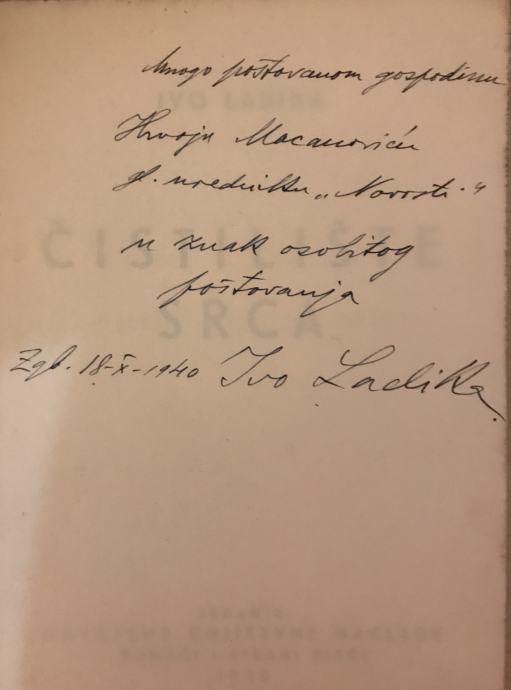 Mnogo poštovanom gospodinu
Hrvoju Macanoviću
gl. uredniku „Novosti“
u znak osobitog
poštovanja
Zgb. 18-X-1940 Ivo Ladika
IVO LADIKA
ČISTILIŠTE
SRCA